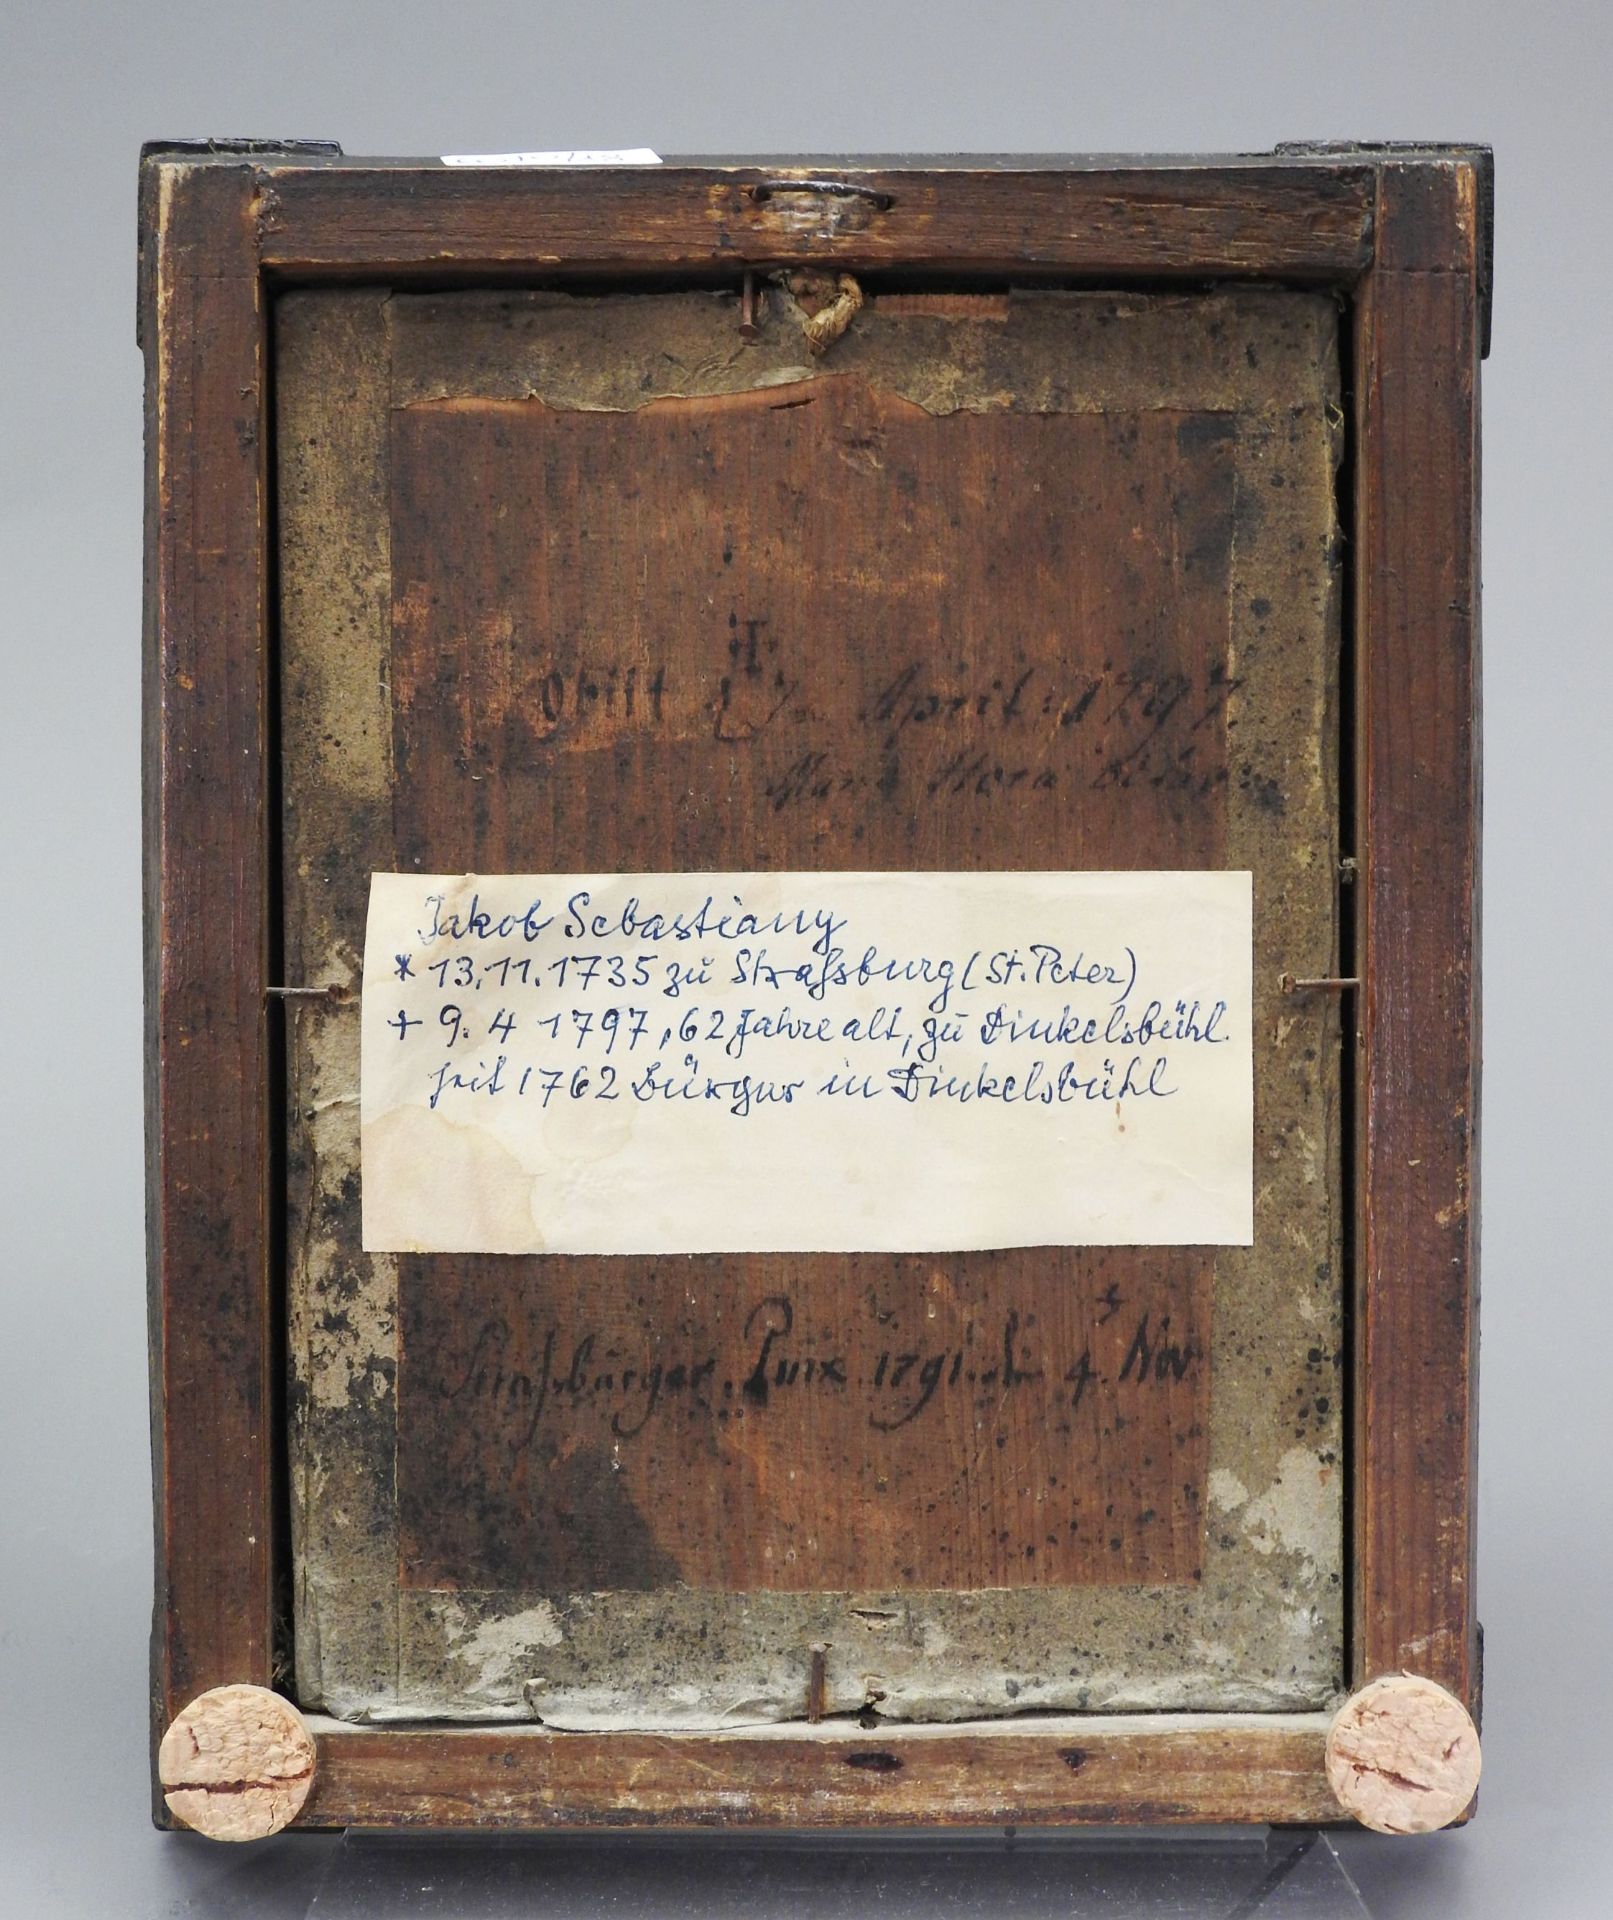 Obiit 7 April: 1797
Hora
Jakob Sebastiany
* 13.11.1735 zu Straßburg (St. Peter)
+ 9. 4 1797, 62 Jahre alt, zu Dinkelsbühl.
seit 1762 Bürger in Dinkelsbühl
Straßburger Pinx 1791. 4. Nov